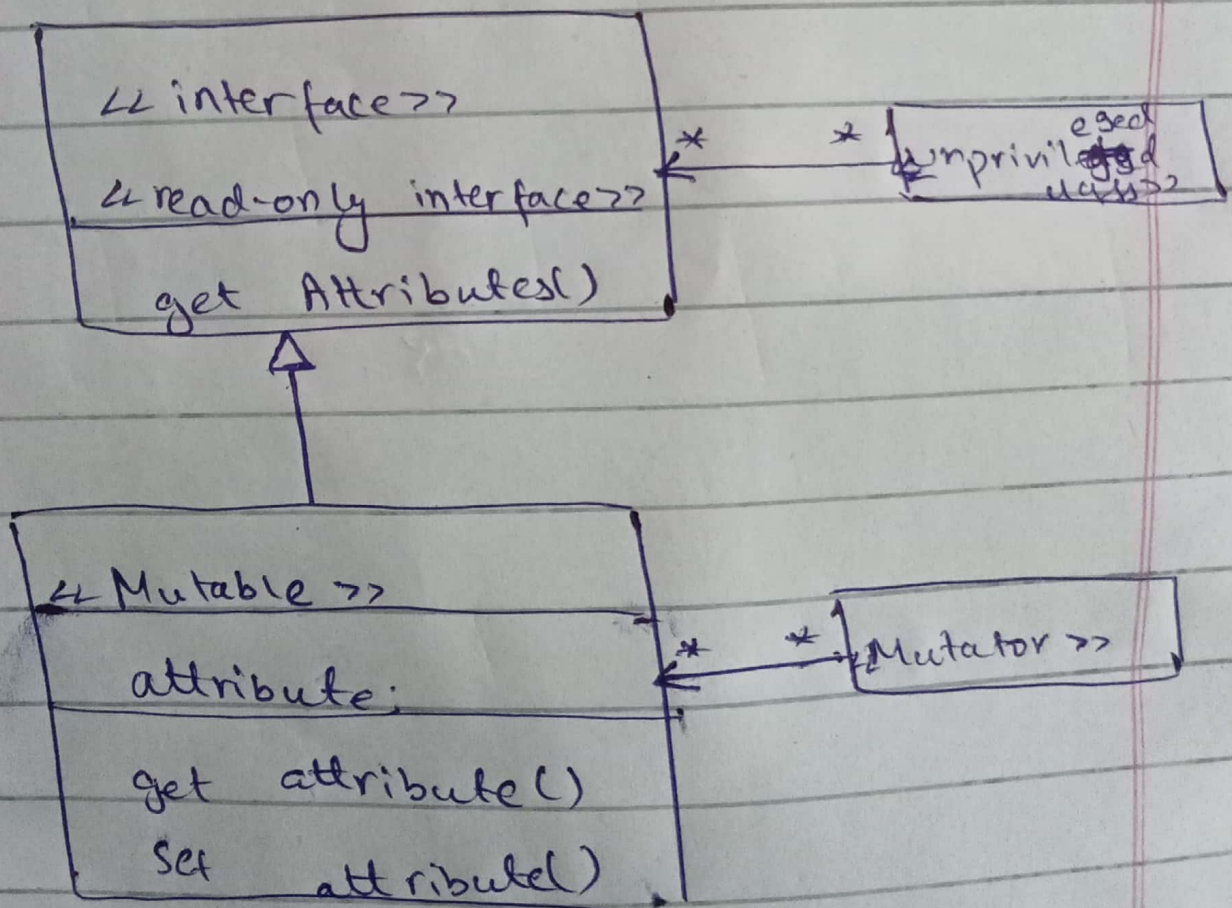 <<interface>>
<<read-only interface>>
get Attributes()
* *
egd
<<unprivileged
class>>
<<Mutable>>
attribute;
* *
<<Mutator>>
get attribute()
set attribute()